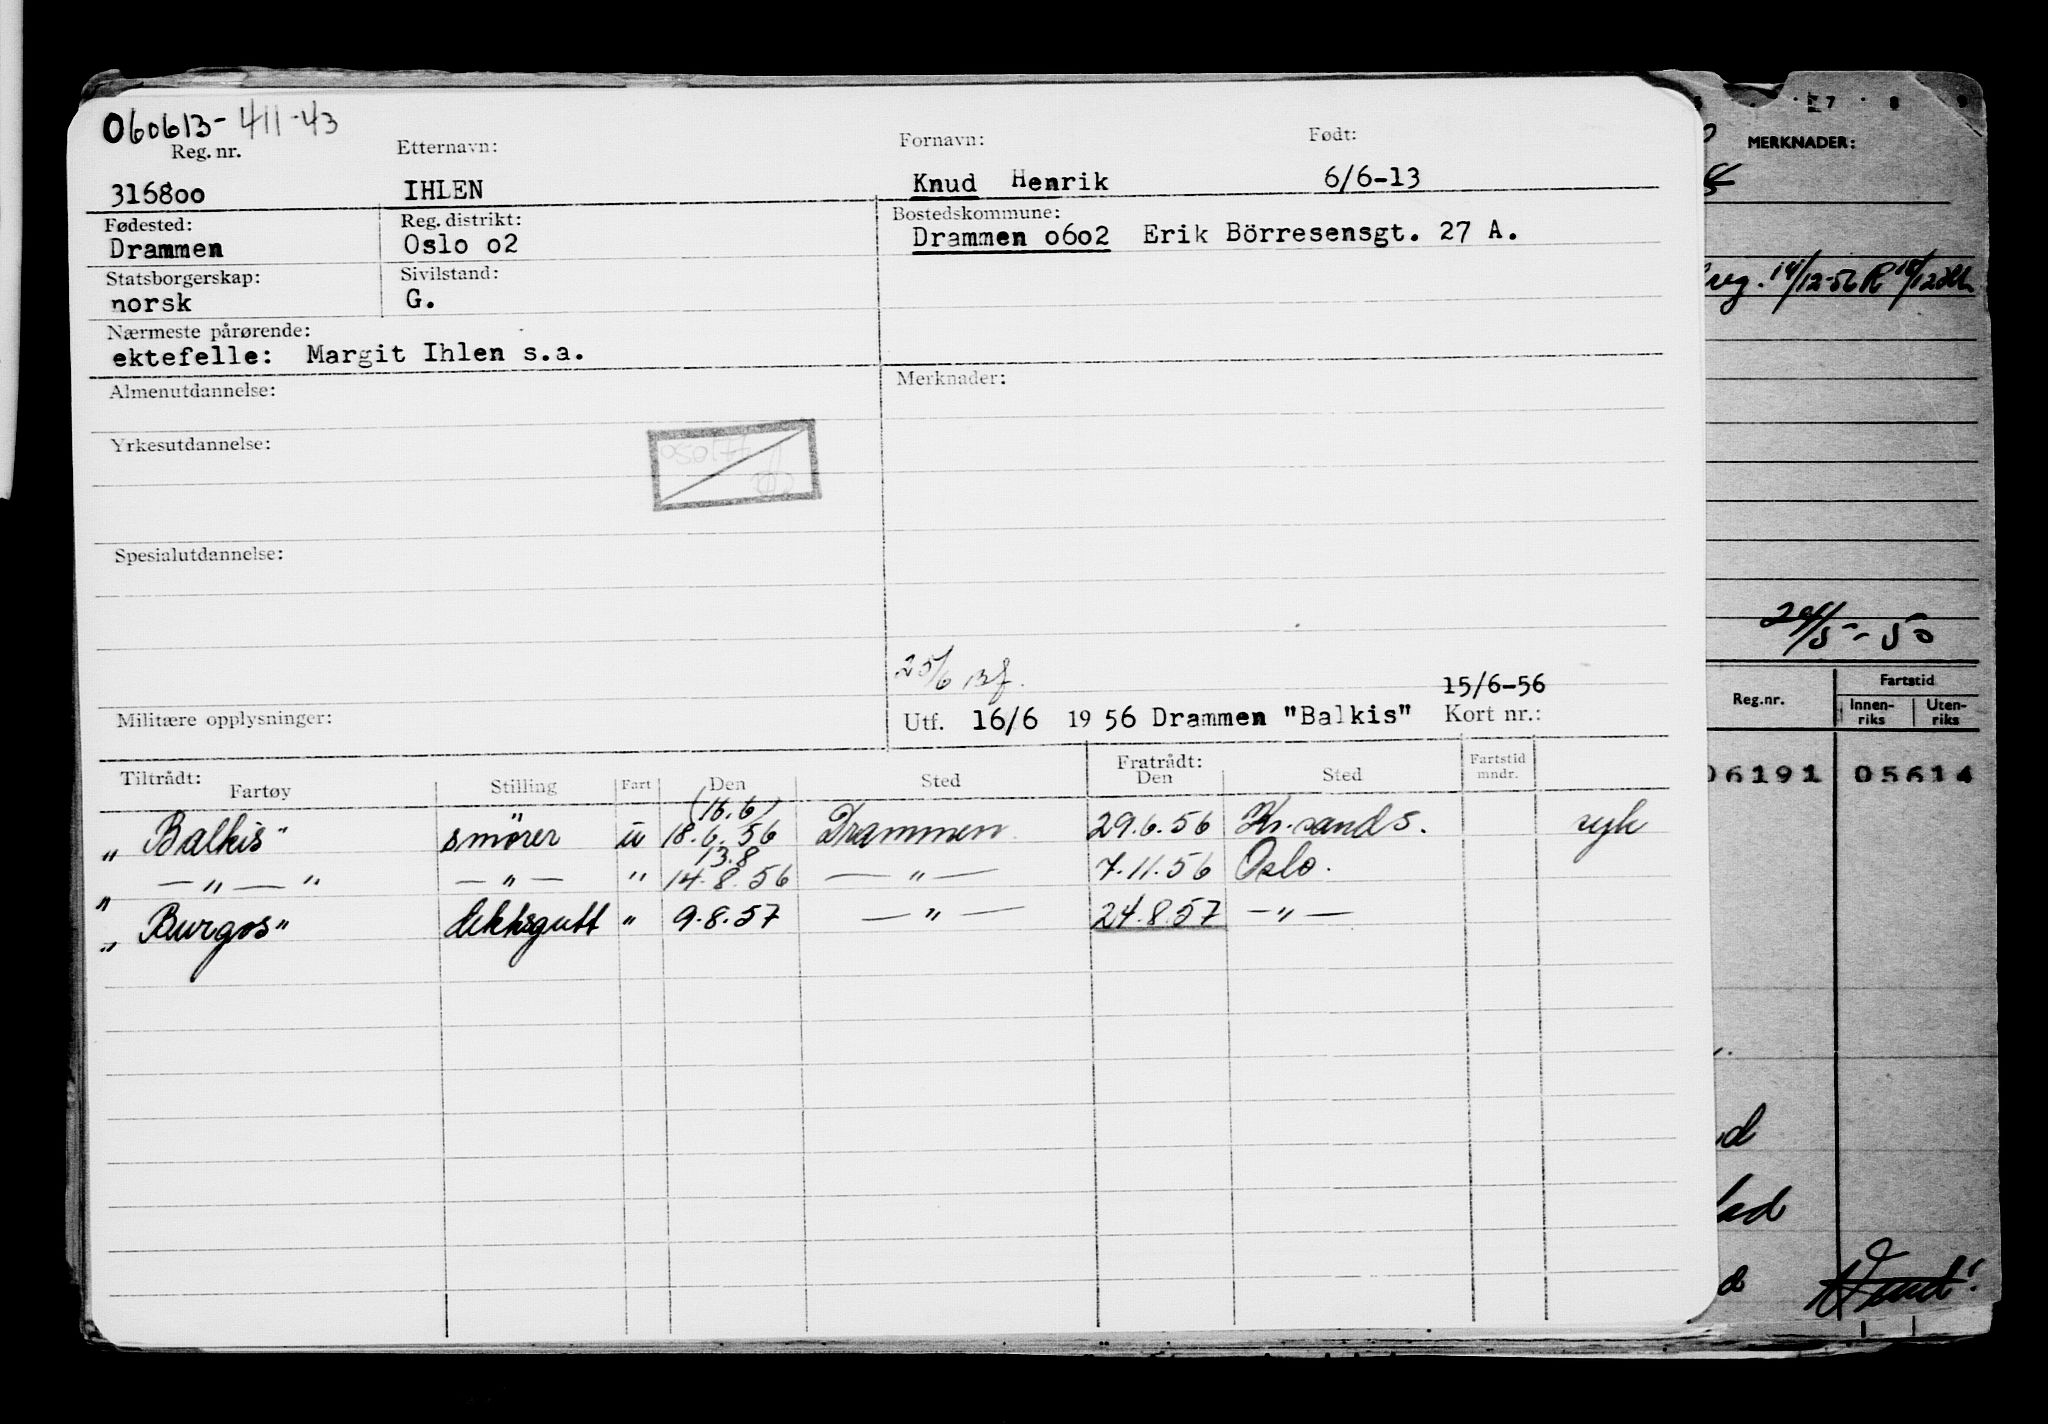 060613-411-43
Reg. nr. Etternavn: Fornavn: Født:
316800 IHLEN Knud Henrik 6/6-13
Fødested: Reg. distrikt: Bostedskommune:
Drammen Oslo o2 Drammen o6o2 Erik Börresensgt. 27 A.
Statsborgerskap: Sivilstand:
norsk G.
Nærmeste pårørende:
ektefelle: Margit Ihlen s.a.
Almenutdannelse: Merknader:
Yrkesutdannelse:
Spesialutdannelse:
25/6
15/6-56
Militære opplysninger: Utf. 16/6 19 56 Drammen "Balkis" Kort nr.:
Tiltrådt: Fratrådt:
Fartøy Stilling Fart Den Sted Den Sted Fartstid mndr.
(16.6)
„Balkis" smører u 18.6.56 Drammen 29.6.56 Kr.sand s. syk
13.8
„ — „ — " — „ — " 14.8.56 — „ — 7.11.56 Oslo.
„Burgos" dekksgutt " 9.8.57 — „ — 24.8.57 — „ —
7 8 9
MERKNADER:
reg. 14/12-56 R
24/5-50
Reg.nr. Fartstid
Innen-riks Uten-riks
06191 05614